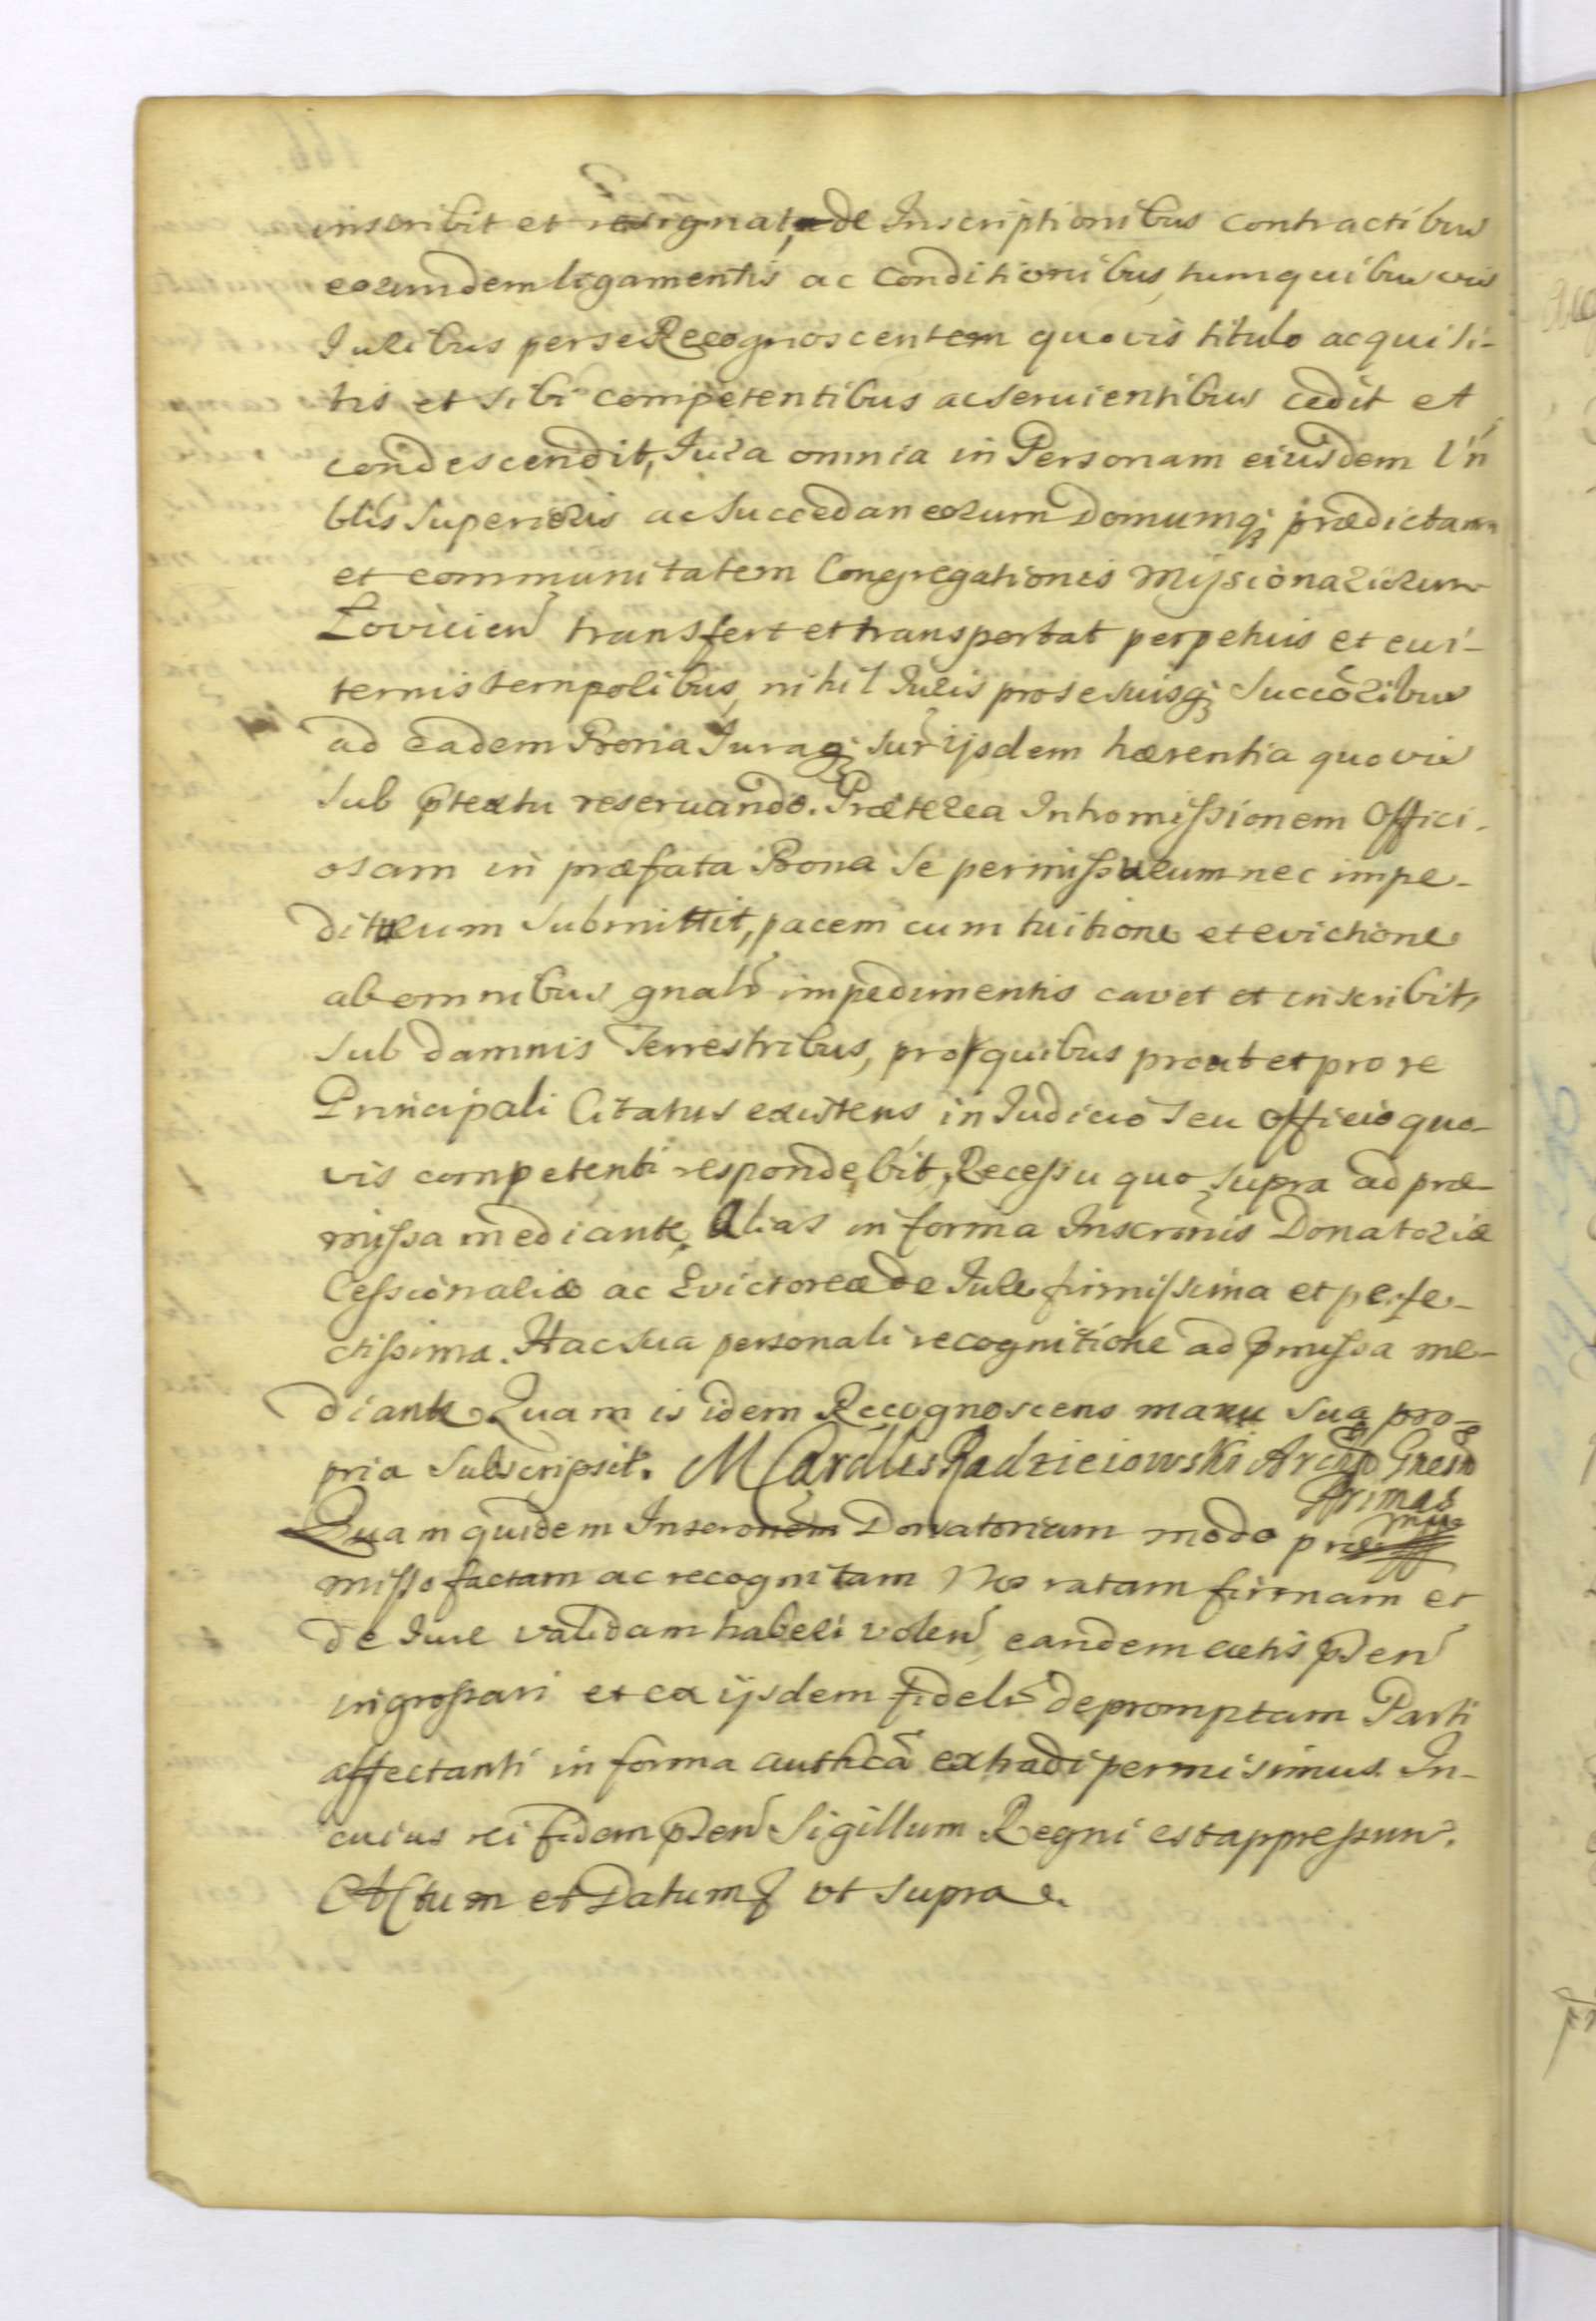 inscribit et resignat, de Inscriptionibus contractibus
eorundem ligamentis ac Conditionibus, tum quibusvis
Juribus per se Recognoscentem quovis titulo acquisi-
tis et sibi competentibus ac seruientibus cedit et
condescendit, Jura omnia in Personam eiusdem Vn
blis Superioris ac Succedaneorum Domumq; prædictam
et communitatem Congregationis Missionariorum
Lovicien transfert et transportat perpetuis et eui-
ternis temporibus, nihil Juris pro se suisq; Succōribus
ad eadem Bona Juraq; sur ijsdem hærentia quovis
sub ptextu reseruando. Præterea Intromissionem Offici-
osam in præfata Bona se permissurum nec impe-
diturum submittit, pacem cum tuitione et evictione
ab omnibus gnalr impedimentis cavet et inscribit,
sub damnis Terrestribus, pro quibus prout et pro re
Principali Citatus existens in Judicio seu Officio quo-
vis competenti respondebit, Recessu quo supra ad præ-
missa mediante, Alias in forma Inscrōnis Donatoriæ
Cessionaliæ ac Evictoreæ de Jure firmissima et perfe-
ctissima. Hac sua personali recognitione ad pmissa me-
diante Quam is idem Recognoscens manu sua pro-
pria subscripsit. M Cardlis Radzieiowski Archp Gnesn
Primas
mp
Quam quidem Inscronem Donatoriam modo præ
misso factam ac recognitam Nos ratam firmam et
de Jure validam haberi volen eandem actis psen
ingrossari et ex ijsdem fidelr depromptam Parti
affectanti in forma authcā extradi permisimus. In-
cuius rei fidem psen Sigillum Regni est appressum.
Actum et Datum ut supra